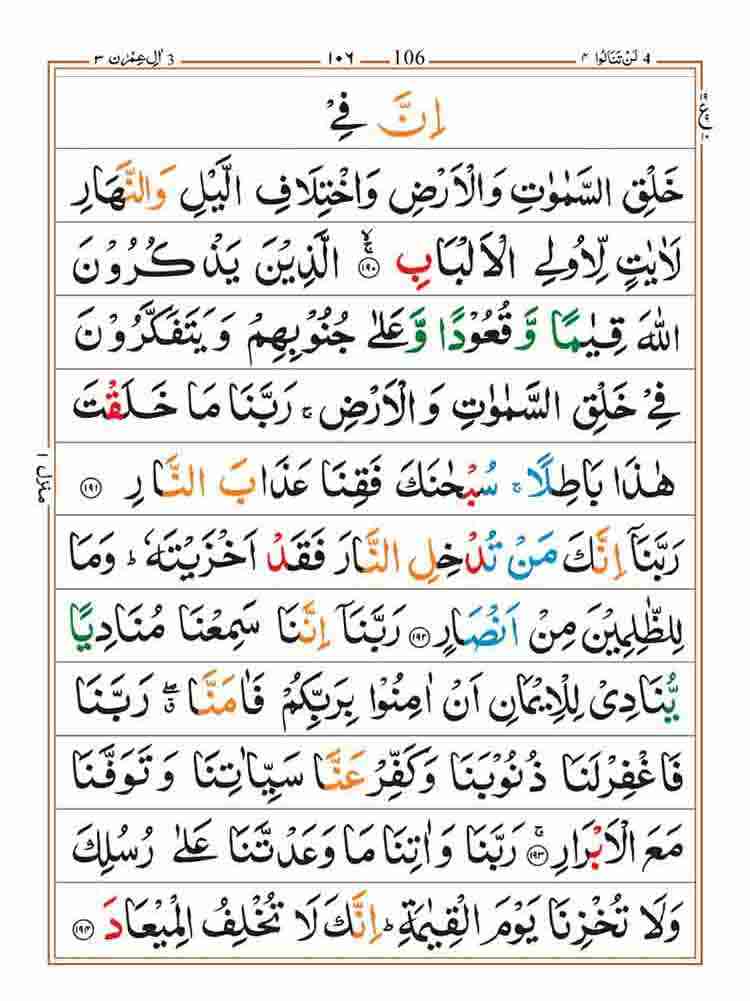 3 اٰلِ عِمْرٰن ٣ ١٠٦ 106 4 لَنْ تَنَالُوا ٤
اِنَّ فِیْ
خَلْقِ السَّمٰوٰتِ وَالْاَرْضِ وَاخْتِلَافِ الَّیْلِ وَالنَّهَارِ
لَاٰیٰتٍ لِّاُولِی الْاَلْبَابِ ۚۙ ﴿۱۹۰﴾ الَّذِیْنَ یَذْكُرُوْنَ
اللّٰهَ قِیٰمًا وَّ قُعُوْدًا وَّ عَلٰی جُنُوْبِهِمْ وَ یَتَفَكَّرُوْنَ
فِیْ خَلْقِ السَّمٰوٰتِ وَ الْاَرْضِ ۚ رَبَّنَا مَا خَلَقْتَ
هٰذَا بَاطِلًا ۚ سُبْحٰنَكَ فَقِنَا عَذَابَ النَّارِ ﴿۱۹۱﴾
رَبَّنَاۤ اِنَّكَ مَنْ تُدْخِلِ النَّارَ فَقَدْ اَخْزَیْتَهٗ ؕ وَمَا
لِلظّٰلِمِیْنَ مِنْ اَنْصَارٍ ﴿۱۹۲﴾ رَبَّنَاۤ اِنَّنَا سَمِعْنَا مُنَادِیًا
یُّنَادِیْ لِلْاِیْمَانِ اَنْ اٰمِنُوْا بِرَبِّكُمْ فَاٰمَنَّا ۖۗ رَبَّنَا
فَاغْفِرْلَنَا ذُنُوْبَنَا وَكَفِّرْ عَنَّا سَیِّاٰتِنَا وَ تَوَفَّنَا
مَعَ الْاَبْرَارِ ۚ ﴿۱۹۳﴾ رَبَّنَا وَ اٰتِنَا مَا وَعَدْتَّنَا عَلٰی رُسُلِكَ
وَلَا تُخْزِنَا یَوْمَ الْقِیٰمَةِ ؕ اِنَّكَ لَا تُخْلِفُ الْمِیْعَادَ ﴿۱۹۴﴾
منزل ۱